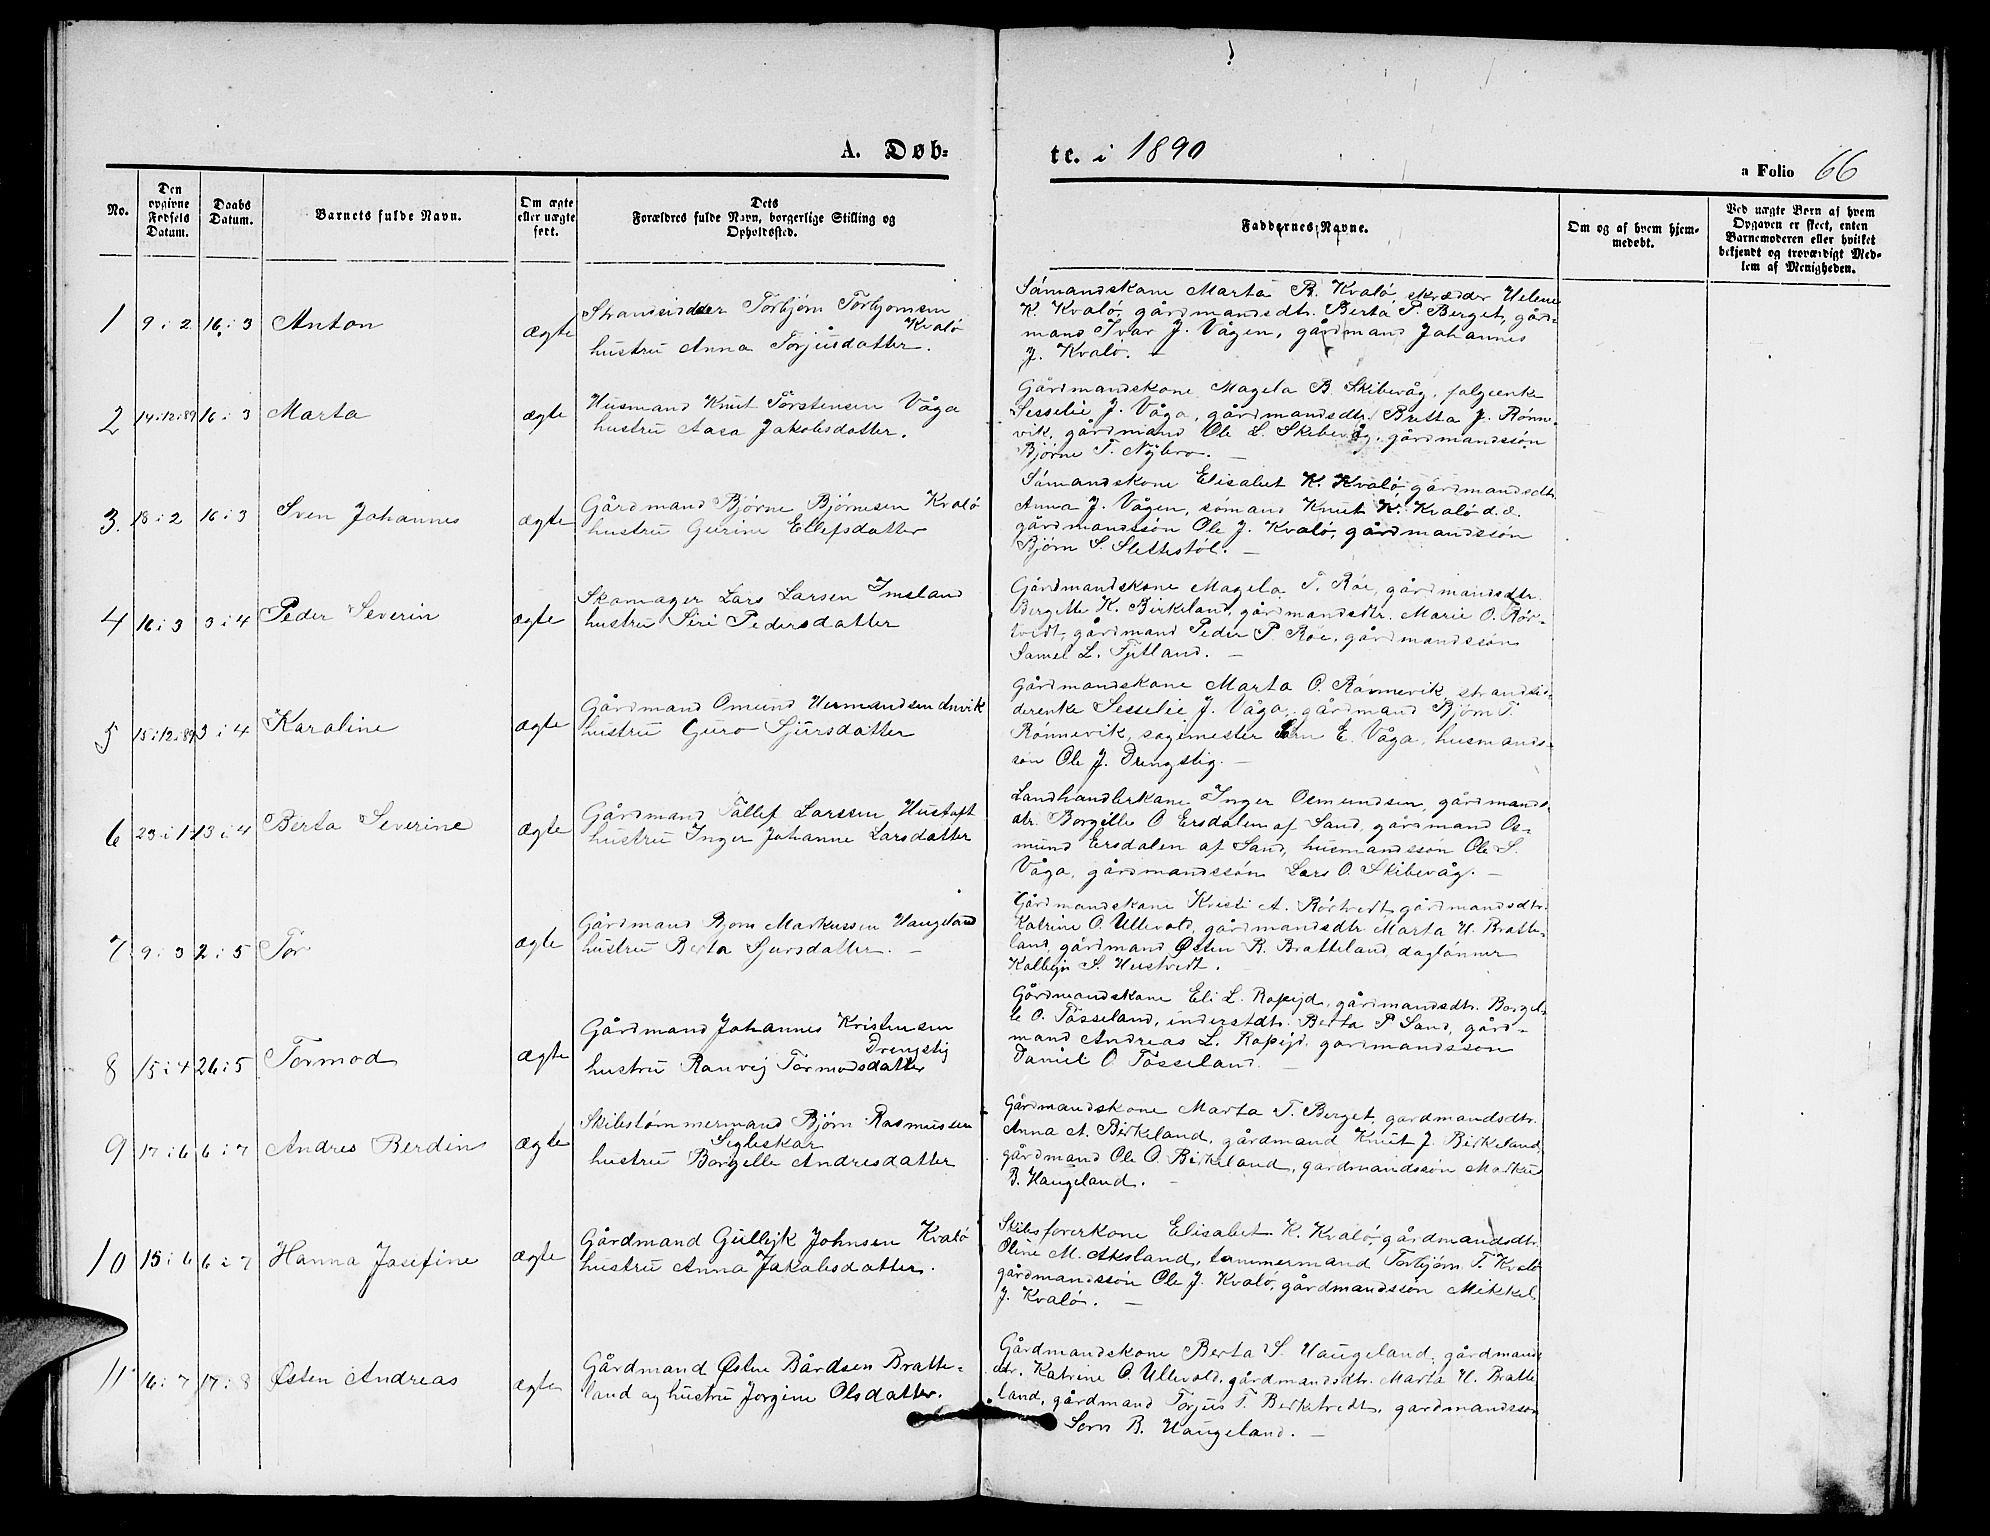 A. Døb-
te. i 1890
a Folio 66
No.
Den opgivne Fødsels Datum.
Daabs Datum.
Barnets fulde Navn.
Om ægte eller uægte født.
Dets Forældres fulde Navn, borgerlige Stilling og Opholdssted.
Faddernes Navne.
Om og af hvem hjemmedøbt.
Ved uægte Børn af hvem Opgaven er skeet, enten Barnemoderen eller hvilket bekjendt og troværdigt Medlem af Menigheden.
1 9 i 2 16 i 3 Anton ægte
Strandsidder Torbjørn Torbjornsen
Kvalö
hustru Anna Torjusdatter.
Sömandskone Marta B. Kvalö, skrædder Helene
K. Kvalö, gårdmandsdtr. Berta T. Berget, gård-
mand Ivar J. Vågen, gårdmand Johannes
J. Kvalö. –
2 14 i 12 i 89 16 i 3 Marta ægte
Husmand Knut Torstensen Våga
hustru Aasa Jakobsdatter.
Gårdmandskone Magela B. Skibevåg, folgeenke
Sesselie J. Våga, gårdmandsdtr. Britta J. Rönne-
vik, gårdmand Ole L. Skibevåg, gårdmandssøn
Bjørne T. Nybro. –
3. 18 i 2 16 i 3 Sven Johannes ægte
Gårdmand Bjørne Bjørnesen Kvalö
hustru Gurine Ellefsdatter
Sömandskone Elisabet K. Kvalö, gårdmandsdtr.
Anna J. Vågen, sömand Knut K. Kvalö d.e.
gårdmandssøn Ole J. Kvalö, gårdmandssön
Bjørn S. Slettestöl. –
4 16 i 3 3 i 4 Peder Severin ægte
Skomager Lars Larsen Imsland
hustru Siri Pedersdatter
Gårdmandskone Magela T. Röe, gårdmandsdtr.
Bergette K. Birkeland, gårdmandsdtr. Marie O. Rör-
tvedt, gårdmand Peder P. Röe, gårdmandssön
Samel L. Fjetland. –
5 15 i 12 i 89 3 i 4 Karoline ægte
Gårdmand Omund Hermandsen Anvik
hustru Guro Sjursdatter
Gårdmandskone Marta O. Rönnevik, strandsid-
derenke Sesselie J. Våga, gårdmand Bjørn T.
Rönnevik, sagemester E. Våga, husmands-
søn Ole J. Drengstig. –
6 23 i 1 13 i 4 Berta Severine ægte
Gårdmand Tollef Larssen Hustoft
hustru Inger Johanne Larsdatter
Landhandlerkone Inger Osmundsen, gårdmands-
dtr. Borgille O Ersdalen af Sand, gårdmand Os-
mund Ersdalen af Sand, husmandssön Ole S.
Våga, gårdmandssön Lars O. Skibevåg. –
7 9 i 3 2 i 5 Tor ægte
Gårdmand Bjorn Markussen Haugeland
hustru Berta Sjursdatter. –
Gårdmandskone Kristi A. Rörtvedt, gårdmandsdtr.
Katrine O. Ullevold, gårdmandsdtr Marta H. Bratte-
land, gårdmand Østen B. Bratteland, daglönner
Kolbejn S. Herstvedt.
8 15 i 4 26 i 5 Tormod ægte
Gårdmand Johannes Kristensen
Drengstig
hustru Ranvej Tormodsdatter
Gårdmandskone Eli L. Ropejd, gårdmandsdtr. Borgel-
le O. Tösseland, inderstdtr. Berta P Sand, gård-
mand Andreas L. Ropejd, gårdmandssøn
Daniel O. Tösseland.
9 17 i 6 6 i 7 Andres Berdin ægte
Skibstømmermand Bjørn Rasmussen
Sigleskar
hustru Borgelle Andresdatter
Gårdmandskone Marta T. Berget, gardmandsdtr.
Anna A. Birkeland, gårdmand Knut J. Birkeland,
gårdmand Ole O. Birkeland, gardmandssøn Markus
B. Haugeland. –
10 15 i 6 6 i 7 Hanna Josefine ægte
Gårdmand Gullejk Johnsen Kvalö
hustru Anna Jakobsdatter.
Skibsforerkone Elisabet K. Kvalö, gårdmandsdtr.
Oline M. Aksland, tømmermand Torbjørn T. Kvalö
gårdmandssön Ole J. Kvalö, gårdmandssøn Mikkel
J. Kvalö. –
11 16 i 7 17 i 8 Østen Andreas ægte
Gårdmand Østen Bårdsen Bratte-
land og hustru Jorgine Olsdatter.
Gårdmandskone Berta S. Haugeland, gårdmands-
dtr. Katrine O. Ullevold, gårdmandsdtr. Marta H. Bratte-
land, gårdmand Torjus T. Berketvedt, gardmandsson
Sorn B. Haugeland. –